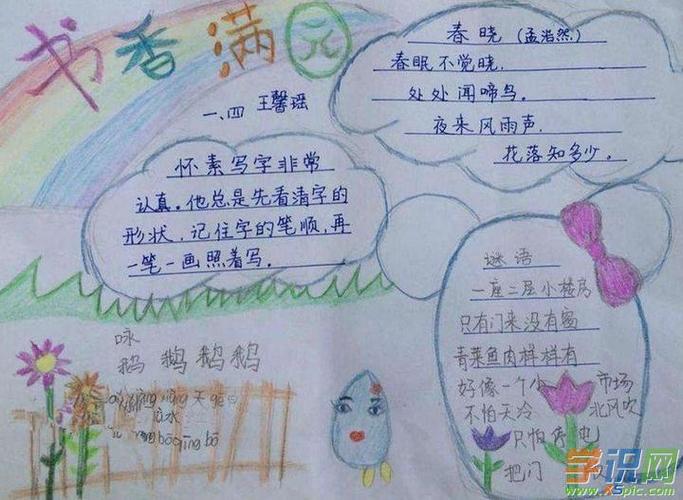 书香满园
一、四 王馨瑶
春晓(孟浩然)
春眠不觉晓,
处处闻啼鸟。
夜来风雨声,
花落知多少。
怀素写字非常
认真。他总是先看清字的
形状,记住字的笔顺,再
一笔一画照着写。
谜语
一座二层小楼房
只有门来没有窗
青菜鱼肉样样有
好像一个小 市场
不怕天冷 北风吹
只怕 电
把门
咏
鹅 鹅鹅鹅
天 gē
水
bō qīng bō
学识网
www.xspic.com